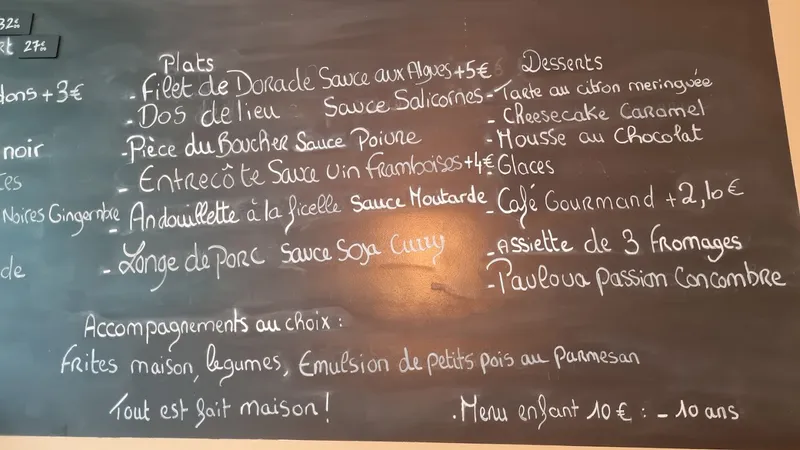 32€
27€
Plats
- Filet de Dorade Sauce aux Algues +5€
- Dos de lieu Sauce Salicornes
- Pièce du Boucher Sauce Poivre
- Entrecôte Sauce vin framboises +4€
- Andouillette à la ficelle Sauce Moutarde
- Longe de porc Sauce Soja Curry
Desserts
- Tarte au citron meringuée
- Cheesecake Caramel
- Mousse au Chocolat
- Glaces
- Café Gourmand +2,10€
- Assiette de 3 fromages
- Pavlova Passion Concombre
+3€
noir
Noires Gingembre
de
Accompagnements au choix :
Frites maison, legumes, Emulsion de petits pois au Parmesan
Tout est fait maison !
. Menu enfant 10€ : - 10 ans